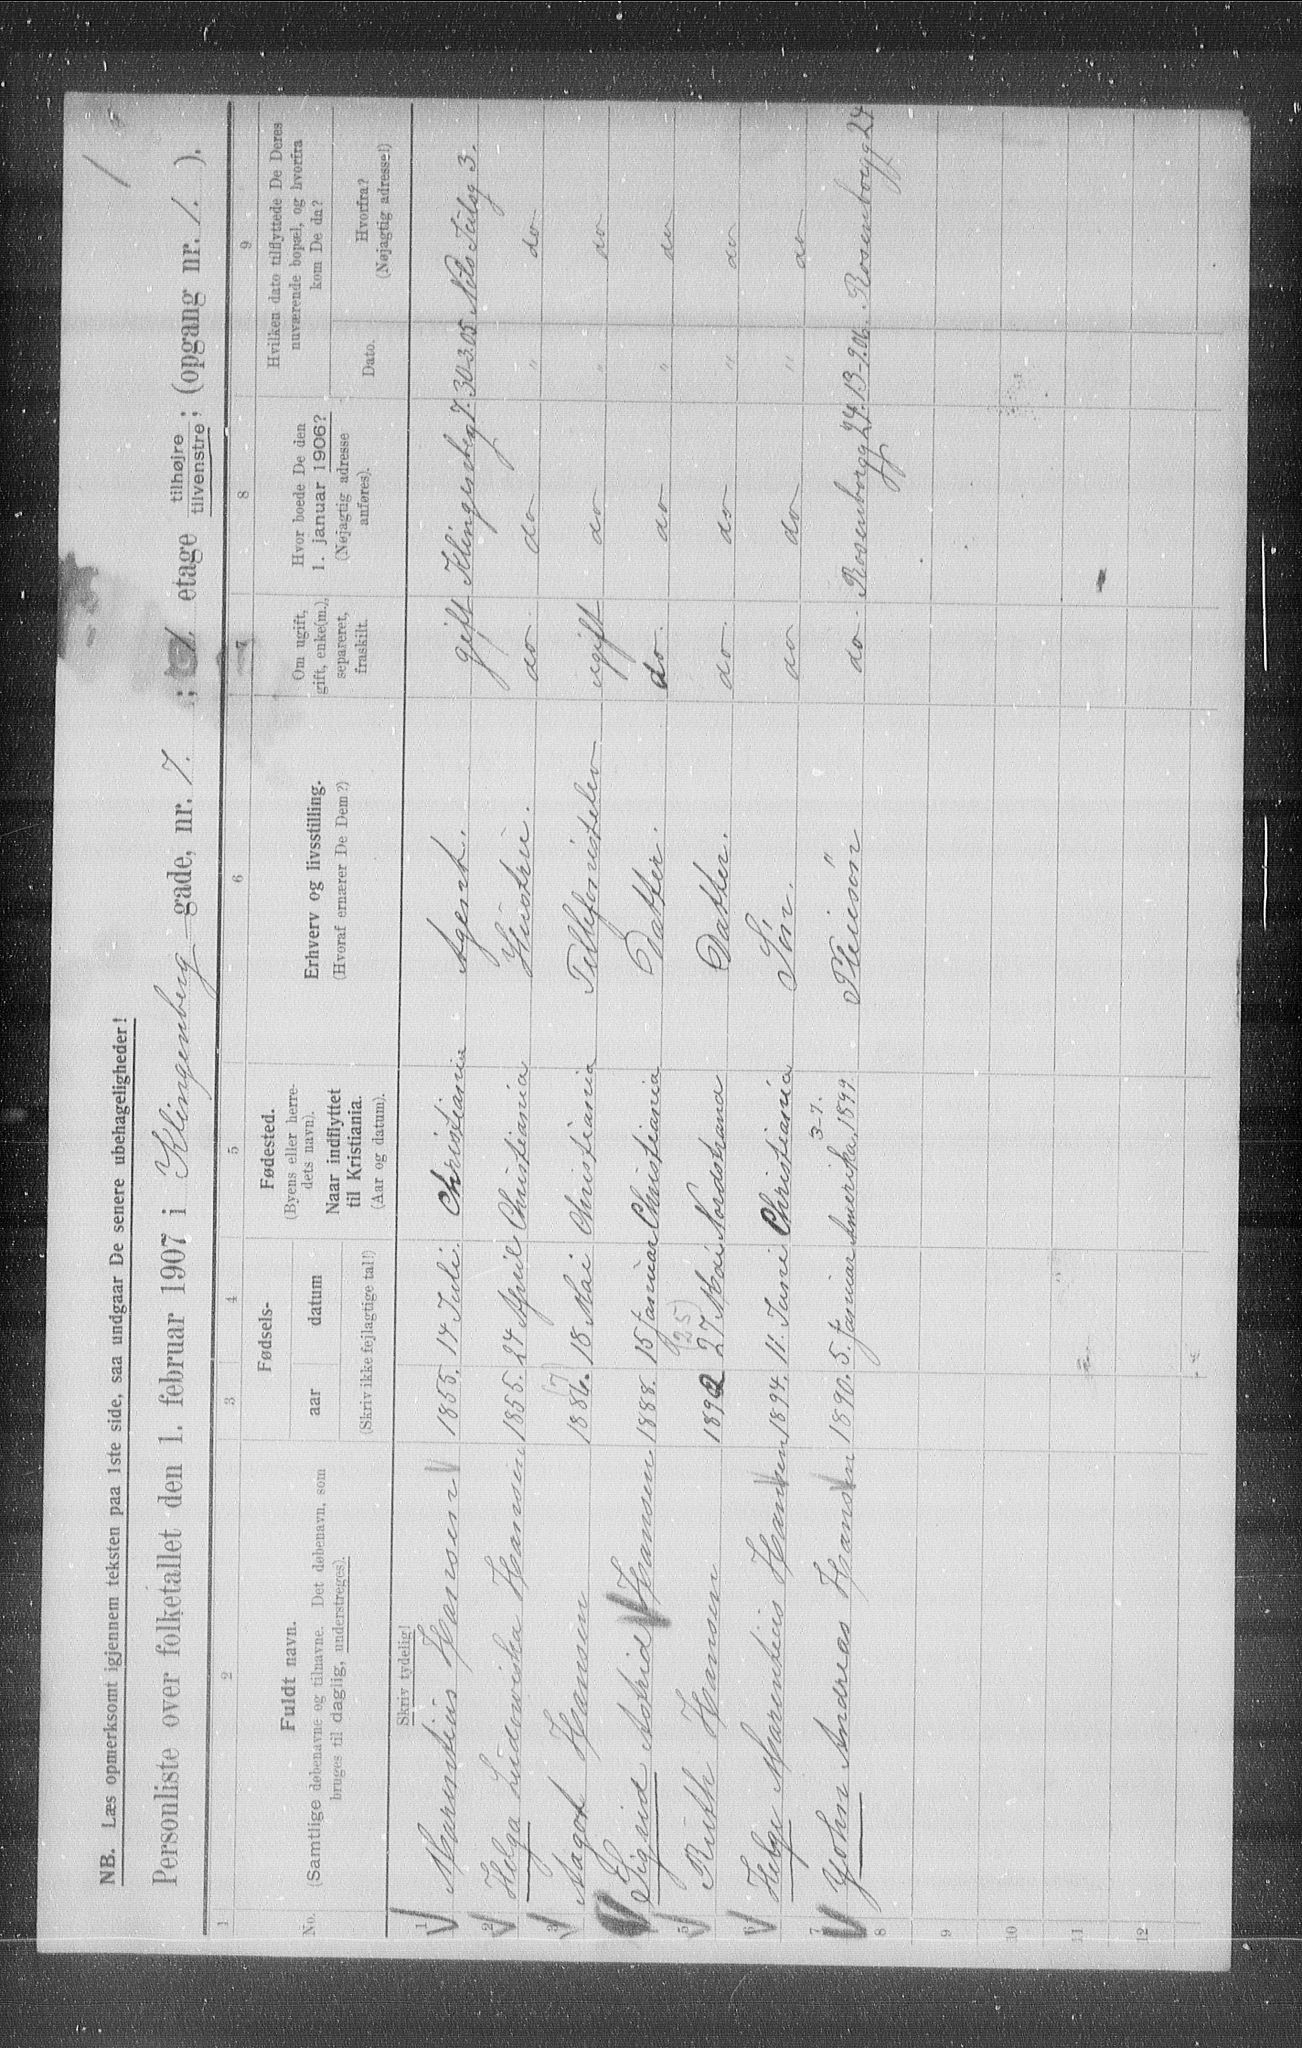 NB. Læs opmerksomt igjennem teksten paa 1ste side, saa undgaar De senere ubehageligheder!
Personliste over folketallet den 1. februar 1907 i Klingenberg gade, nr. 7. ; 1 etage tilhøjre tilvenstre ; (opgang nr. 1. ).
1 2 3 4 5 6 7 8 9
No.
Fuldt navn.
(Samtlige døbenavne og tilnavne. Det døbenavn, som
bruges til daglig, understreges).
Skriv tydelig!
Fødsels-
aar datum
(Skriv ikke fejlagtige tal!)
Fødested.
(Byens eller herre-
dets navn).
Naar indflyttet
til Kristiania.
(Aar og datum).
Erhverv og livsstilling.
(Hvoraf ernærer De Dem?)
Om ugift,
gift, enke(m.),
separeret,
fraskilt.
Hvor boede De den
1. januar 1906?
(Nøjagtig adresse
anføres).
Hvilken dato tilflyttede De Deres
nuværende bopæl, og hvorfra
kom De da?
Dato.
Hvorfra?
(Nøjagtig adresse!)
1 Marentius Hansen 1855. 14 Juli. Christiania Agent. gift Klingenbergg 7. 30-3.05 Nels Juelsg 3.
2 Helga Ludovikka Hansen 1855. 24 April Christiania Hustru. do. do " do
3 Aagot Hansen 1886. (7) 18 Mai Christiania Tellefonistelev ugift do " do
4 Sigrid Astrid Hansen 1888. 15 Januar Christiania Datter. do. do " do
5 Ruth Hansen 1892 (25) 27 Mai Nordstrand Datter. do. do " do
6 Helge Marentius Hansen 1894. 11. Juni Christiania Søn. do do " do
7 Yohn Andreas Hansen 1890. 5. Januar Amerika 3-7. 1899. Pleiesön do. Rosenborgg 24. 13-9.06. Rosenborgg 24
8
9
10
11
12